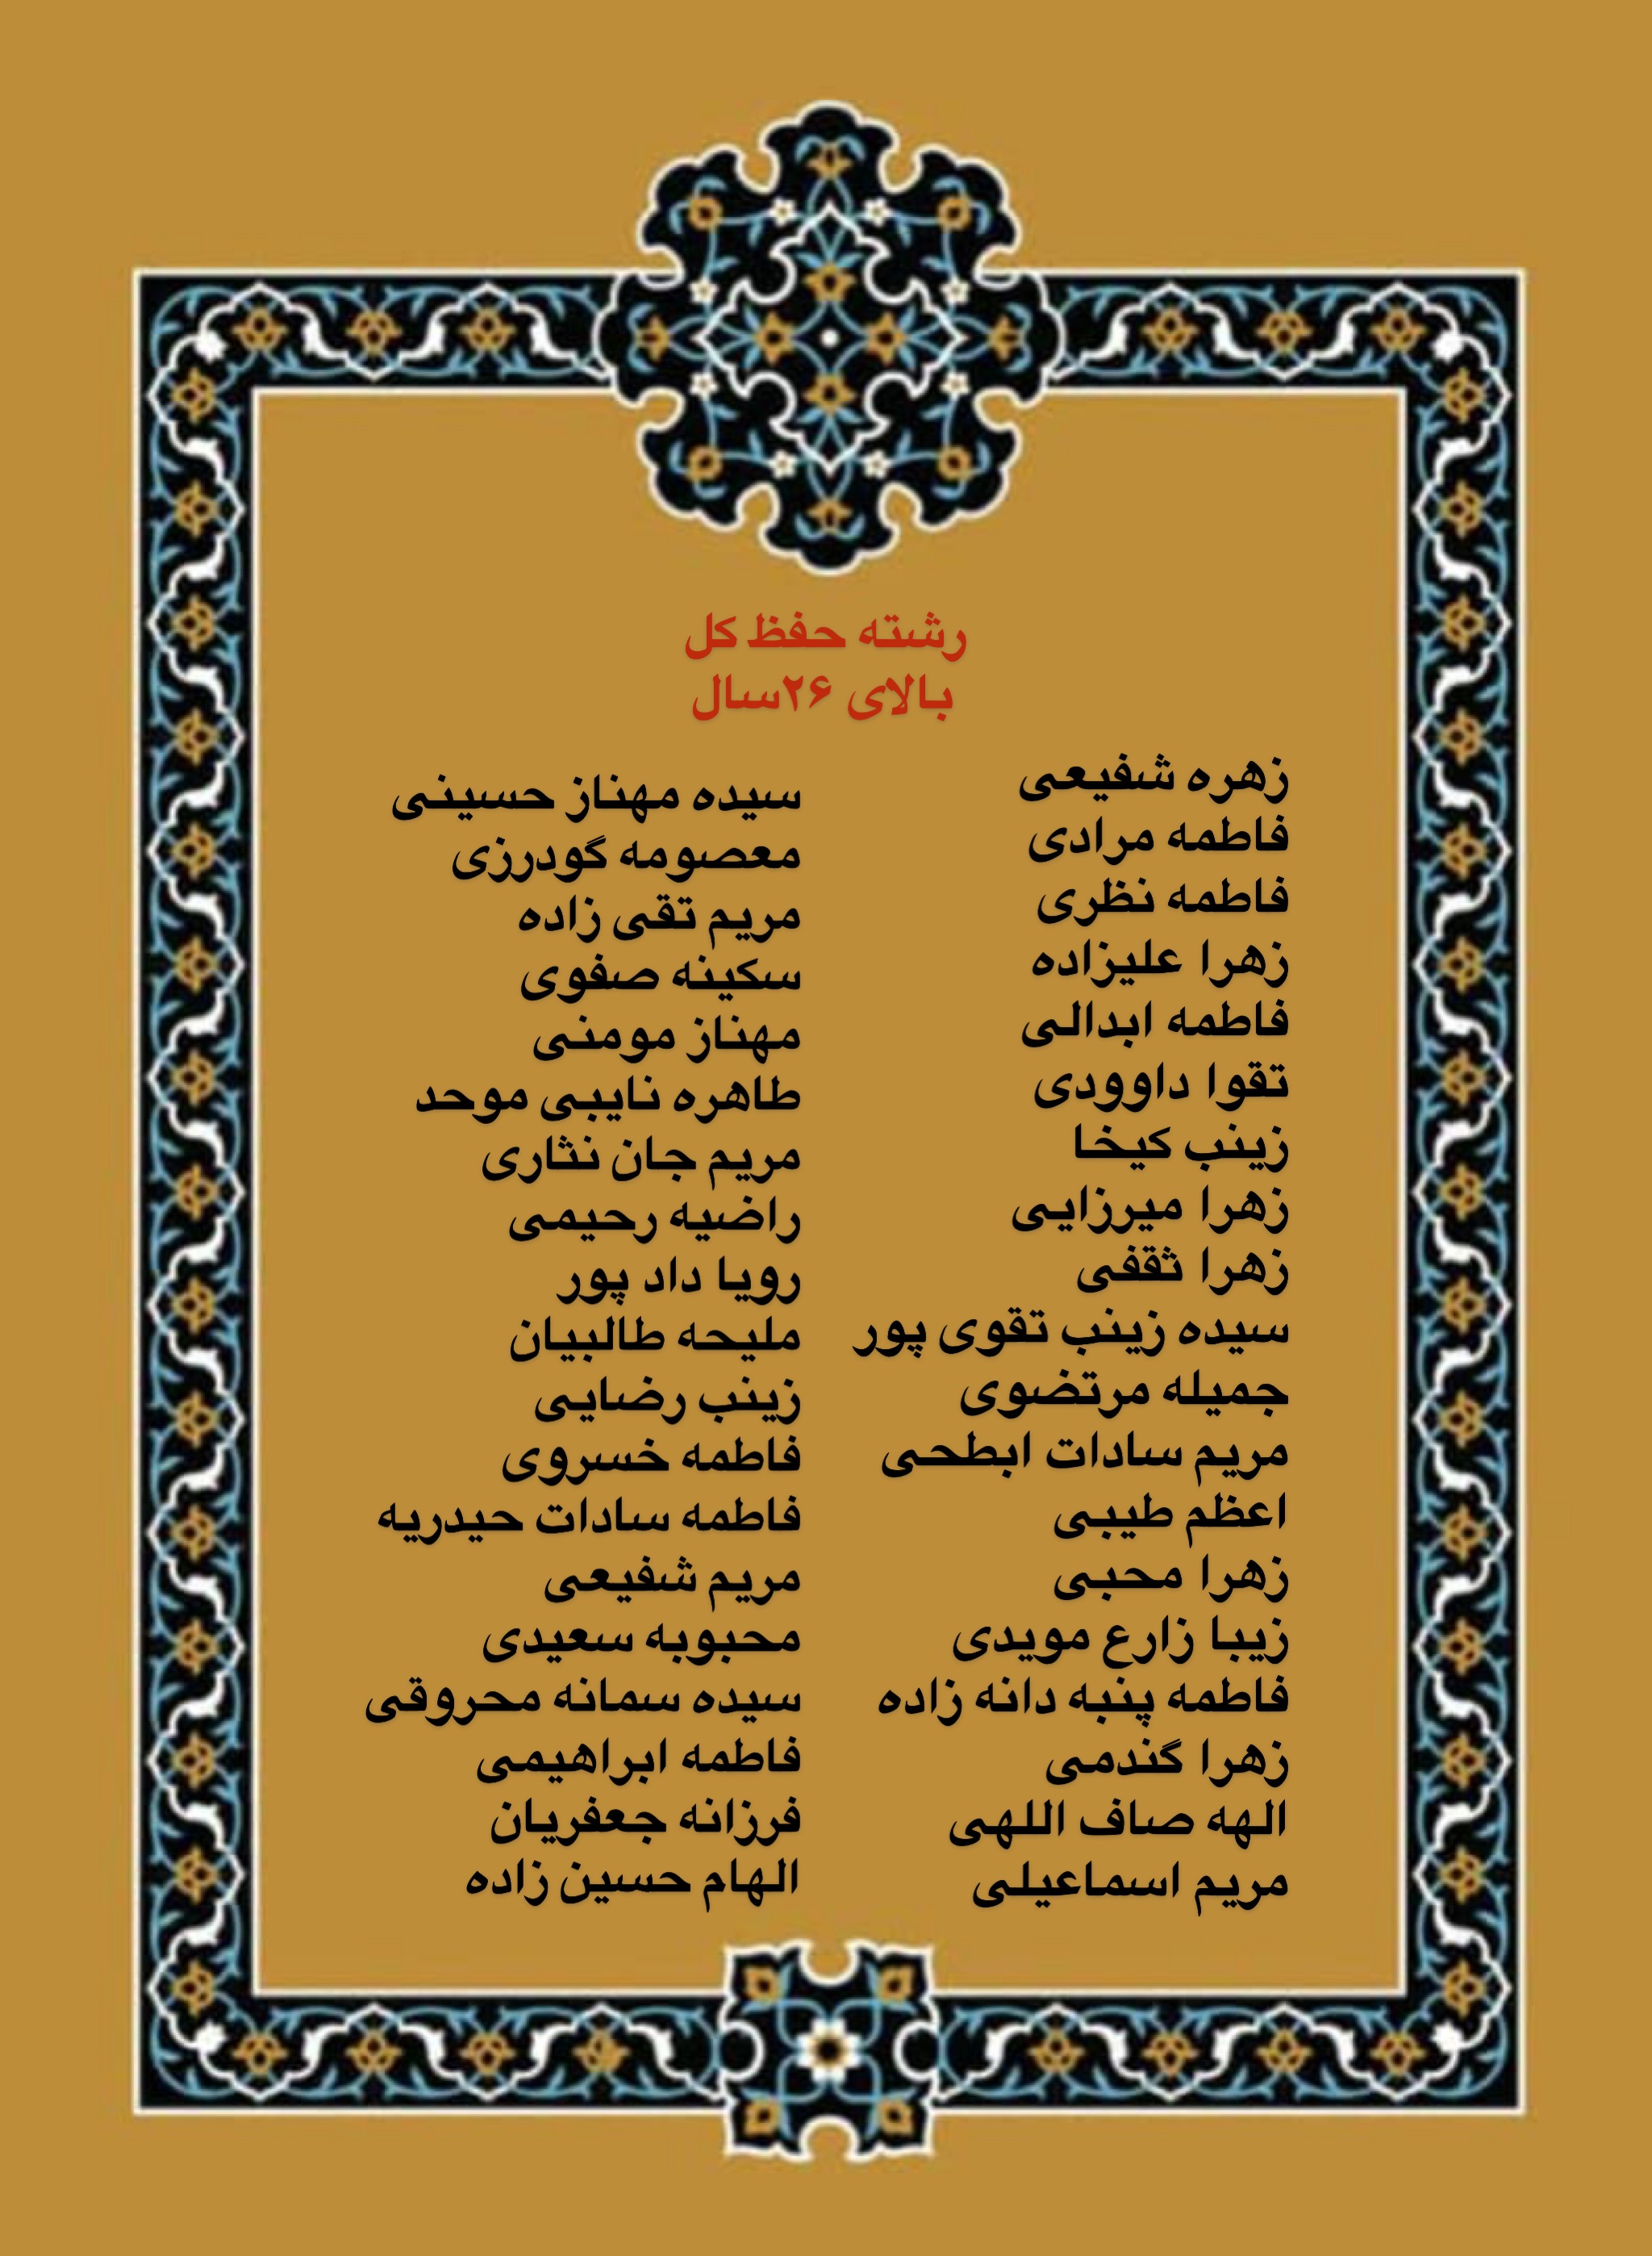 رشته حفظ کل
بالای ۲۶سال
زهره شفیعی
فاطمه مرادی
فاطمه نظری
زهرا علیزاده
فاطمه ابدالی
تقوا داوودی
زینب کیخا
زهرا میرزایی
زهرا ثقفی
سیده زینب تقوی پور
جمیله مرتضوی
مریم سادات ابطحی
اعظم طیبی
زهرا محبی
زیبا زارع مویدی
فاطمه پنبه دانه زاده
زهرا گندمی
الهه صاف اللهی
مریم اسماعیلی
سیده مهناز حسینی
معصومه گودرزی
مریم تقی زاده
سکینه صفوی
مهناز مومنی
طاهره نایبی موحد
مریم جان نثاری
راضیه رحیمی
رویا داد پور
ملیحه طالبیان
زینب رضایی
فاطمه خسروی
فاطمه سادات حیدریه
مریم شفیعی
محبوبه سعیدی
سیده سمانه محروقی
فاطمه ابراهیمی
فرزانه جعفریان
الهام حسین زاده